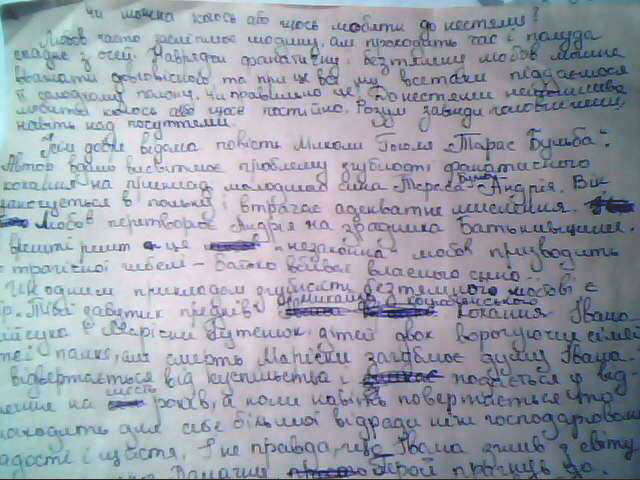 Чи можна когось або щось любити до нестями?
Любов часто засліплює людину, але проходить час і полуда
спадає з очей. Навряди фанатичну, безтямну любов можна
вважати довговічного та при це все му все таки піддаємося
її солодкому полону. Чи правильно це? До нестями
любити когось або щось постійно. Розум завжди
навіть над почуттями.
Всім добре відома повість Миколи Гоголя "Тарас Бульба".
Автор вдало висвітлює проблему згубності фанатисного
кохання на прикладі молодшого сина Тараса Бульби Андрія. Він
закохується в польку і втрачає адекватне мислення.
Любов перетворює Андрія на зрадника Батьківщини.
решті решт це незаконна любов призводить
трагічної гибелі – батько вбиває власного сина.
Ще одним прикладом згубність безтямного любові є
Тіні забутих предків Михайла Коцюбинського Кохання Івана
Марічки Гутенюк, дітей двох ворогуючих сімей
палке, але смерть Марічки заглиблює душу Івана.
відвертається від суспільства і подається у від
на шість років, а коли навіть повертається то
находить для себе більшої відради ніж господарювання
радості і щастя. І не правда, що Івана зжив з світу
герой прагнув до.